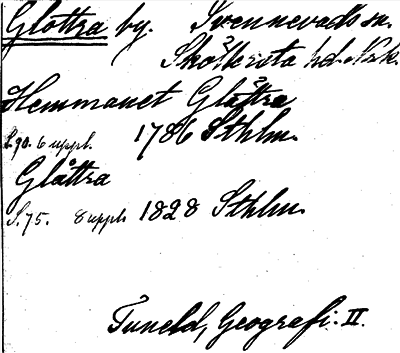 Glottra by. Svennevads sn.
Sköllersta hd. Närk.
Hemmanet Glåttra
S.90. 6 uppl. 1786 Sthlm.
Glåttra
S.75. 8 uppl. 1828 Sthlm.
Tuneld, Geografi. II.